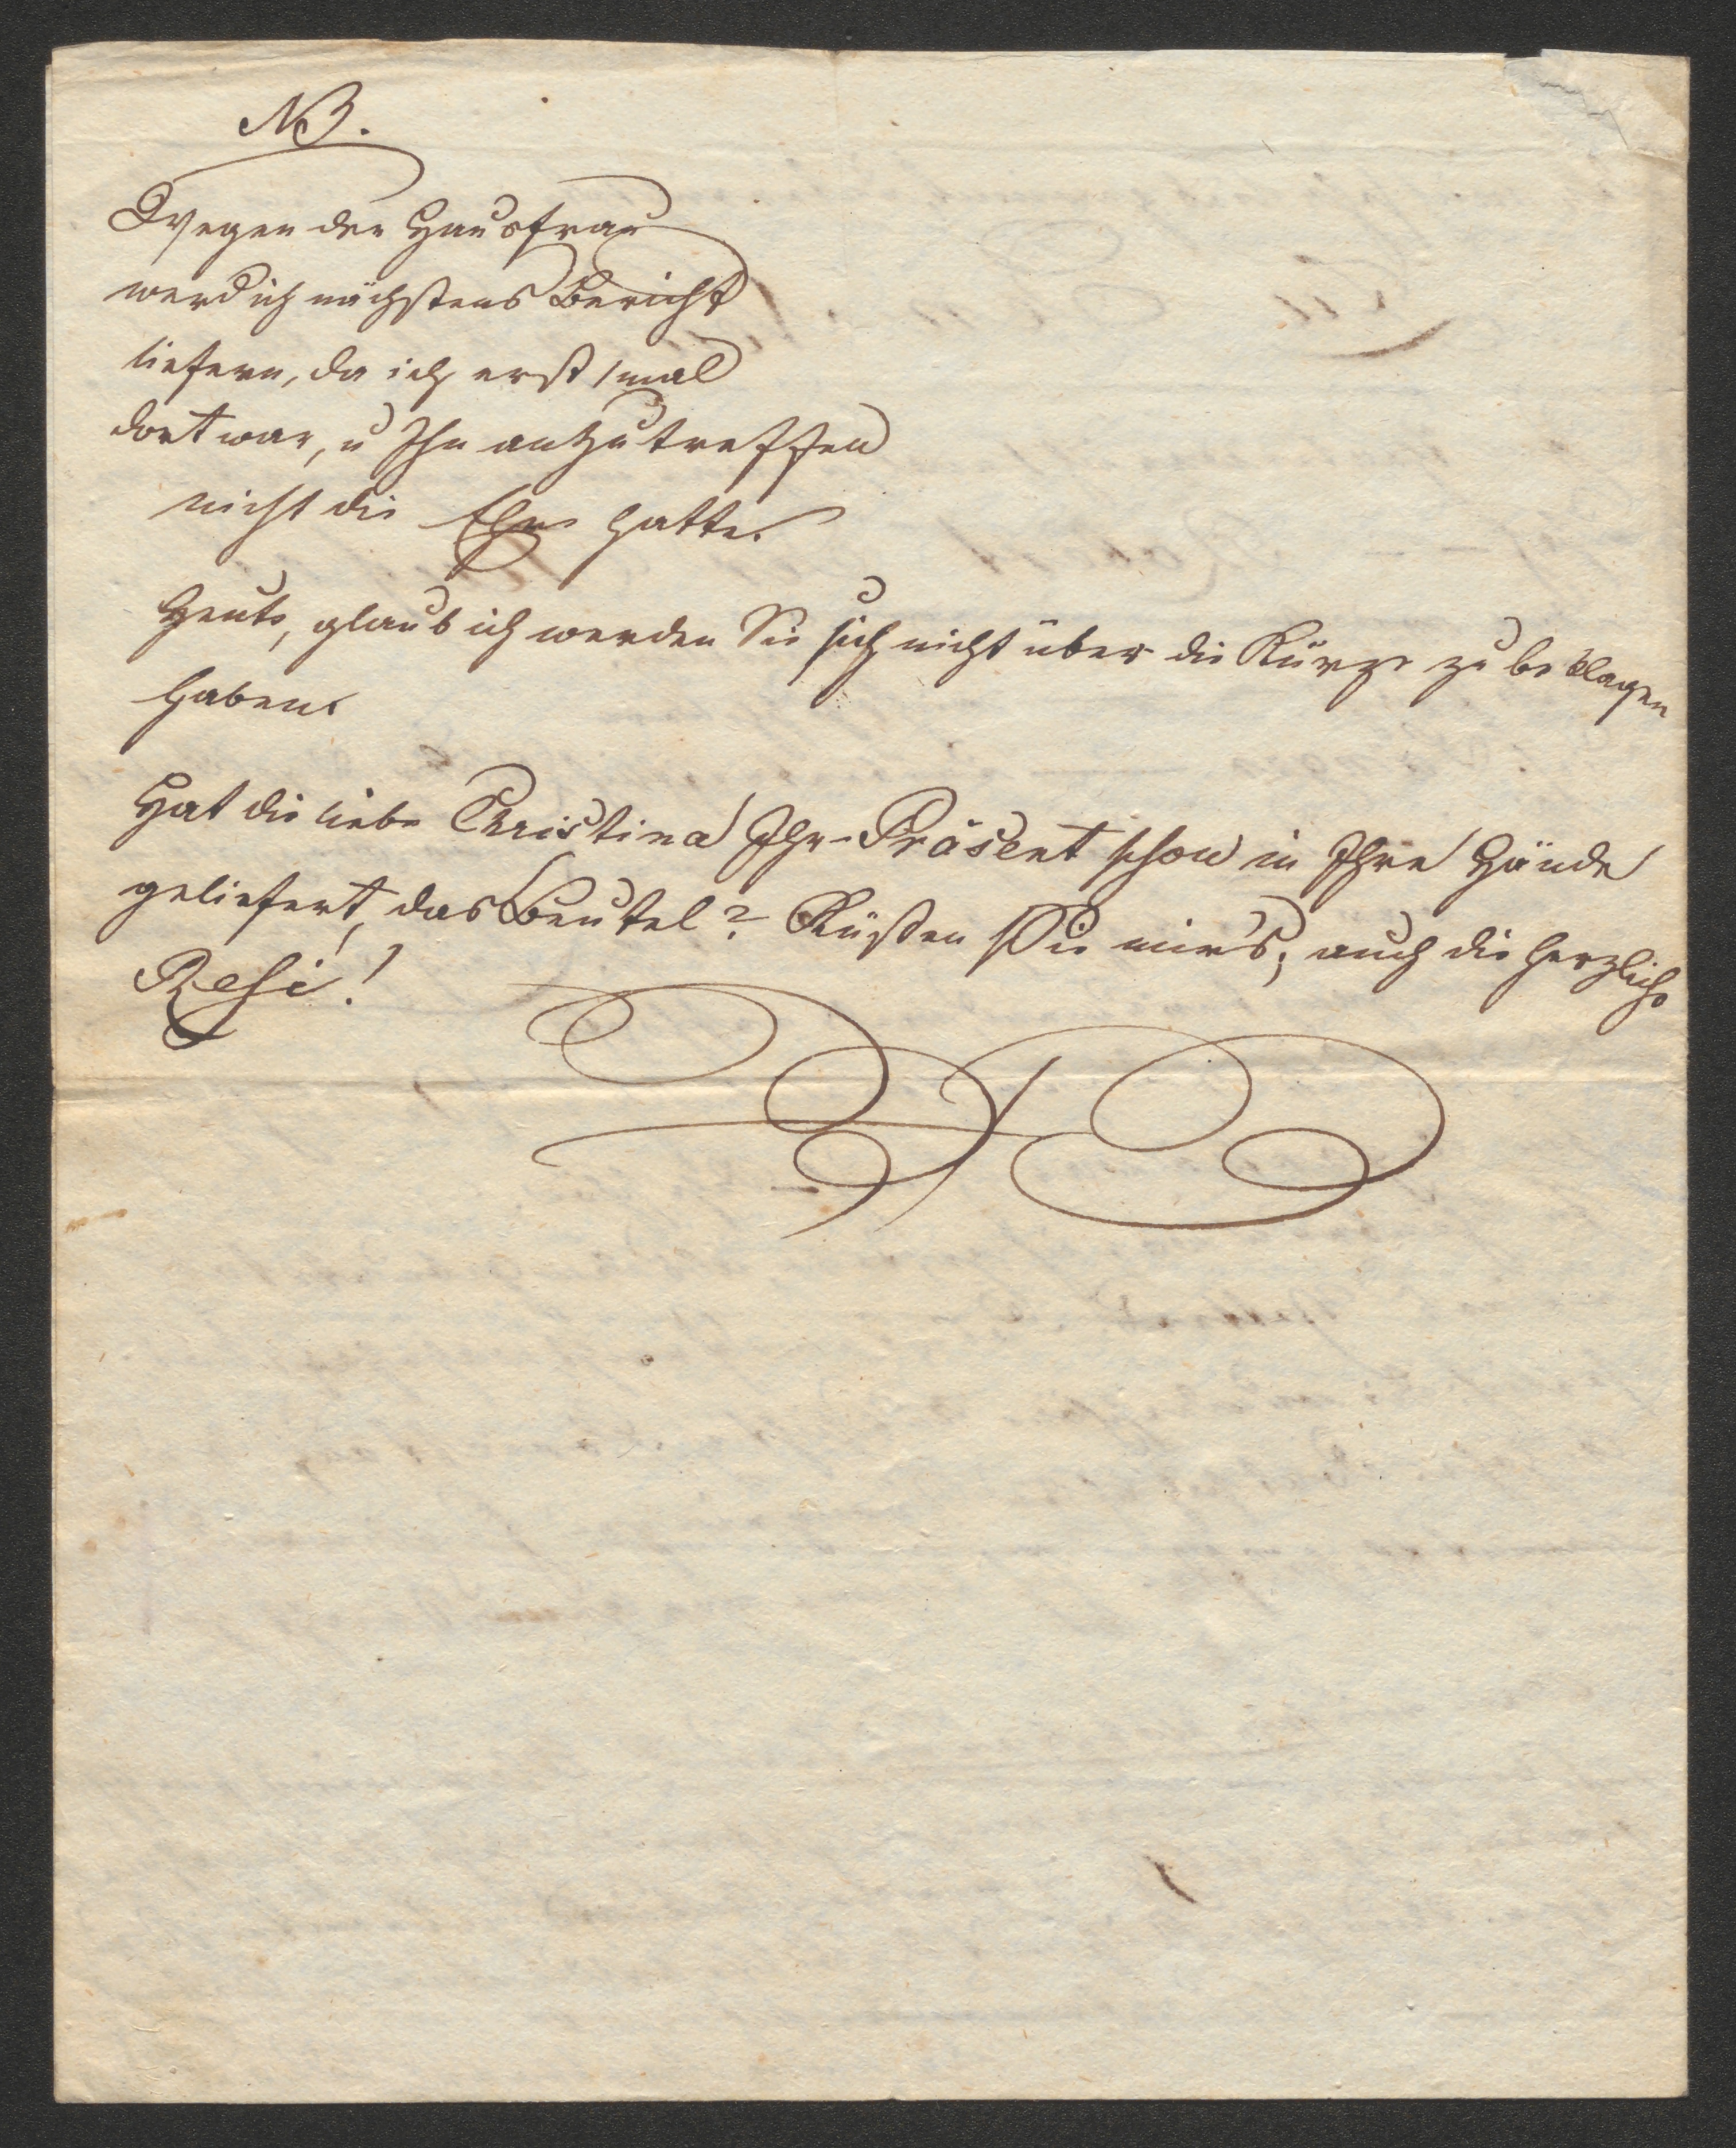 NB.
Wegen der Hausfrau
werd ich nächstens Bericht
liefern, da ich erst 1mal
dort war, u Ihn anzutreffen
nicht die Ehre hatte.
Heute, glaub ich werden Sie sich nicht über die Kürze zu beklagen
haben.
Hat die liebe Christina Ihr Präsent schon in Ihre Hände
geliefert, das Beutel? Küßen Sie mir's, auch die herzliche
Resi!